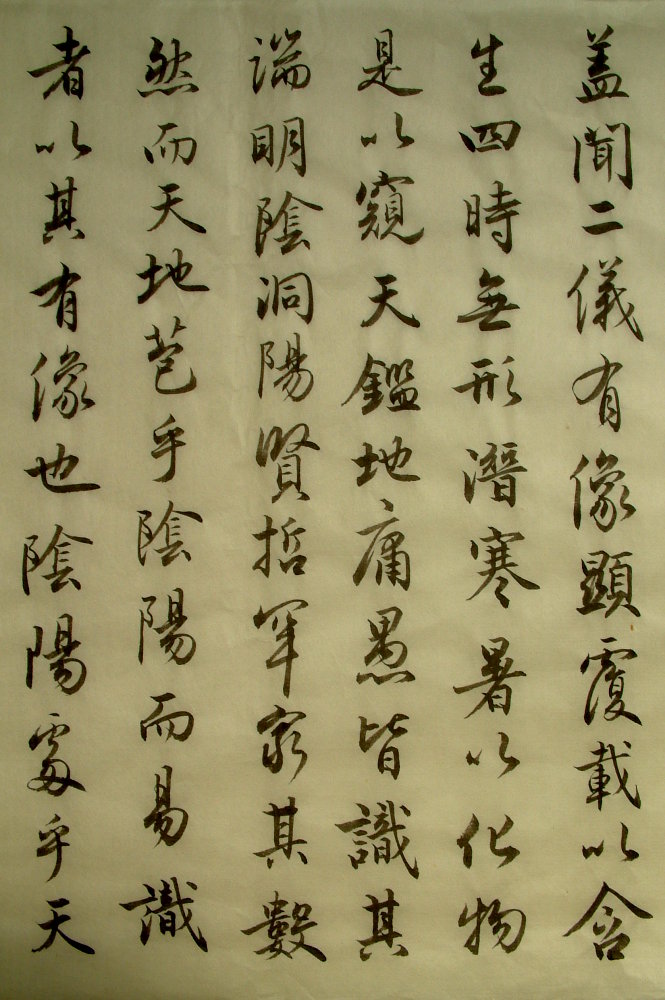 蓋聞二儀有像顯覆載以含
生四時無形潛寒暑以化物
是以窺天鑑地庸愚皆識其
端明陰洞陽賢哲罕窮其數
然而天地苞乎陰陽而易識
者以其有像也陰陽處乎天